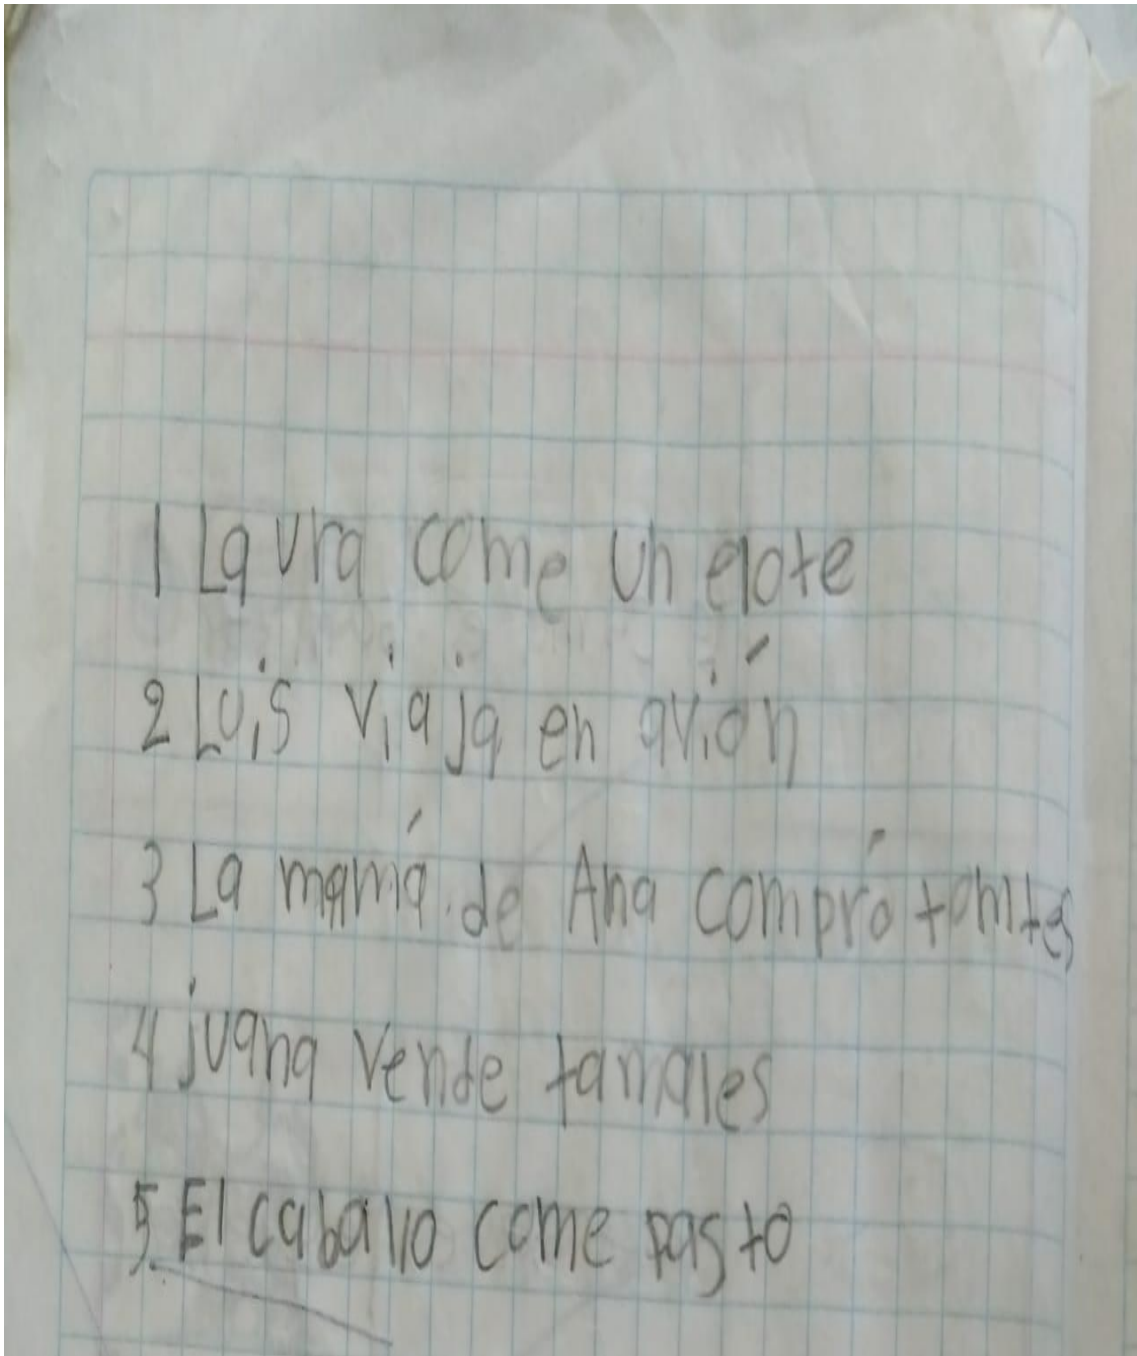 1 Laura come un elote
2 Luis viaja en avión
3 La mamá de Ana compró tomtes
4 juana vende tamales
5. El caballo come pasto